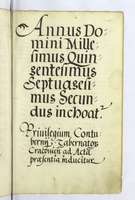 Annus Do-
mini Mille-
simus Quin-
gentesimus
Septuagesi-
mus Secun-
dus inchoat.
Privilegium Contu-
bernij Tabernator.
Cracovien ad Acta
præsentia inducitur